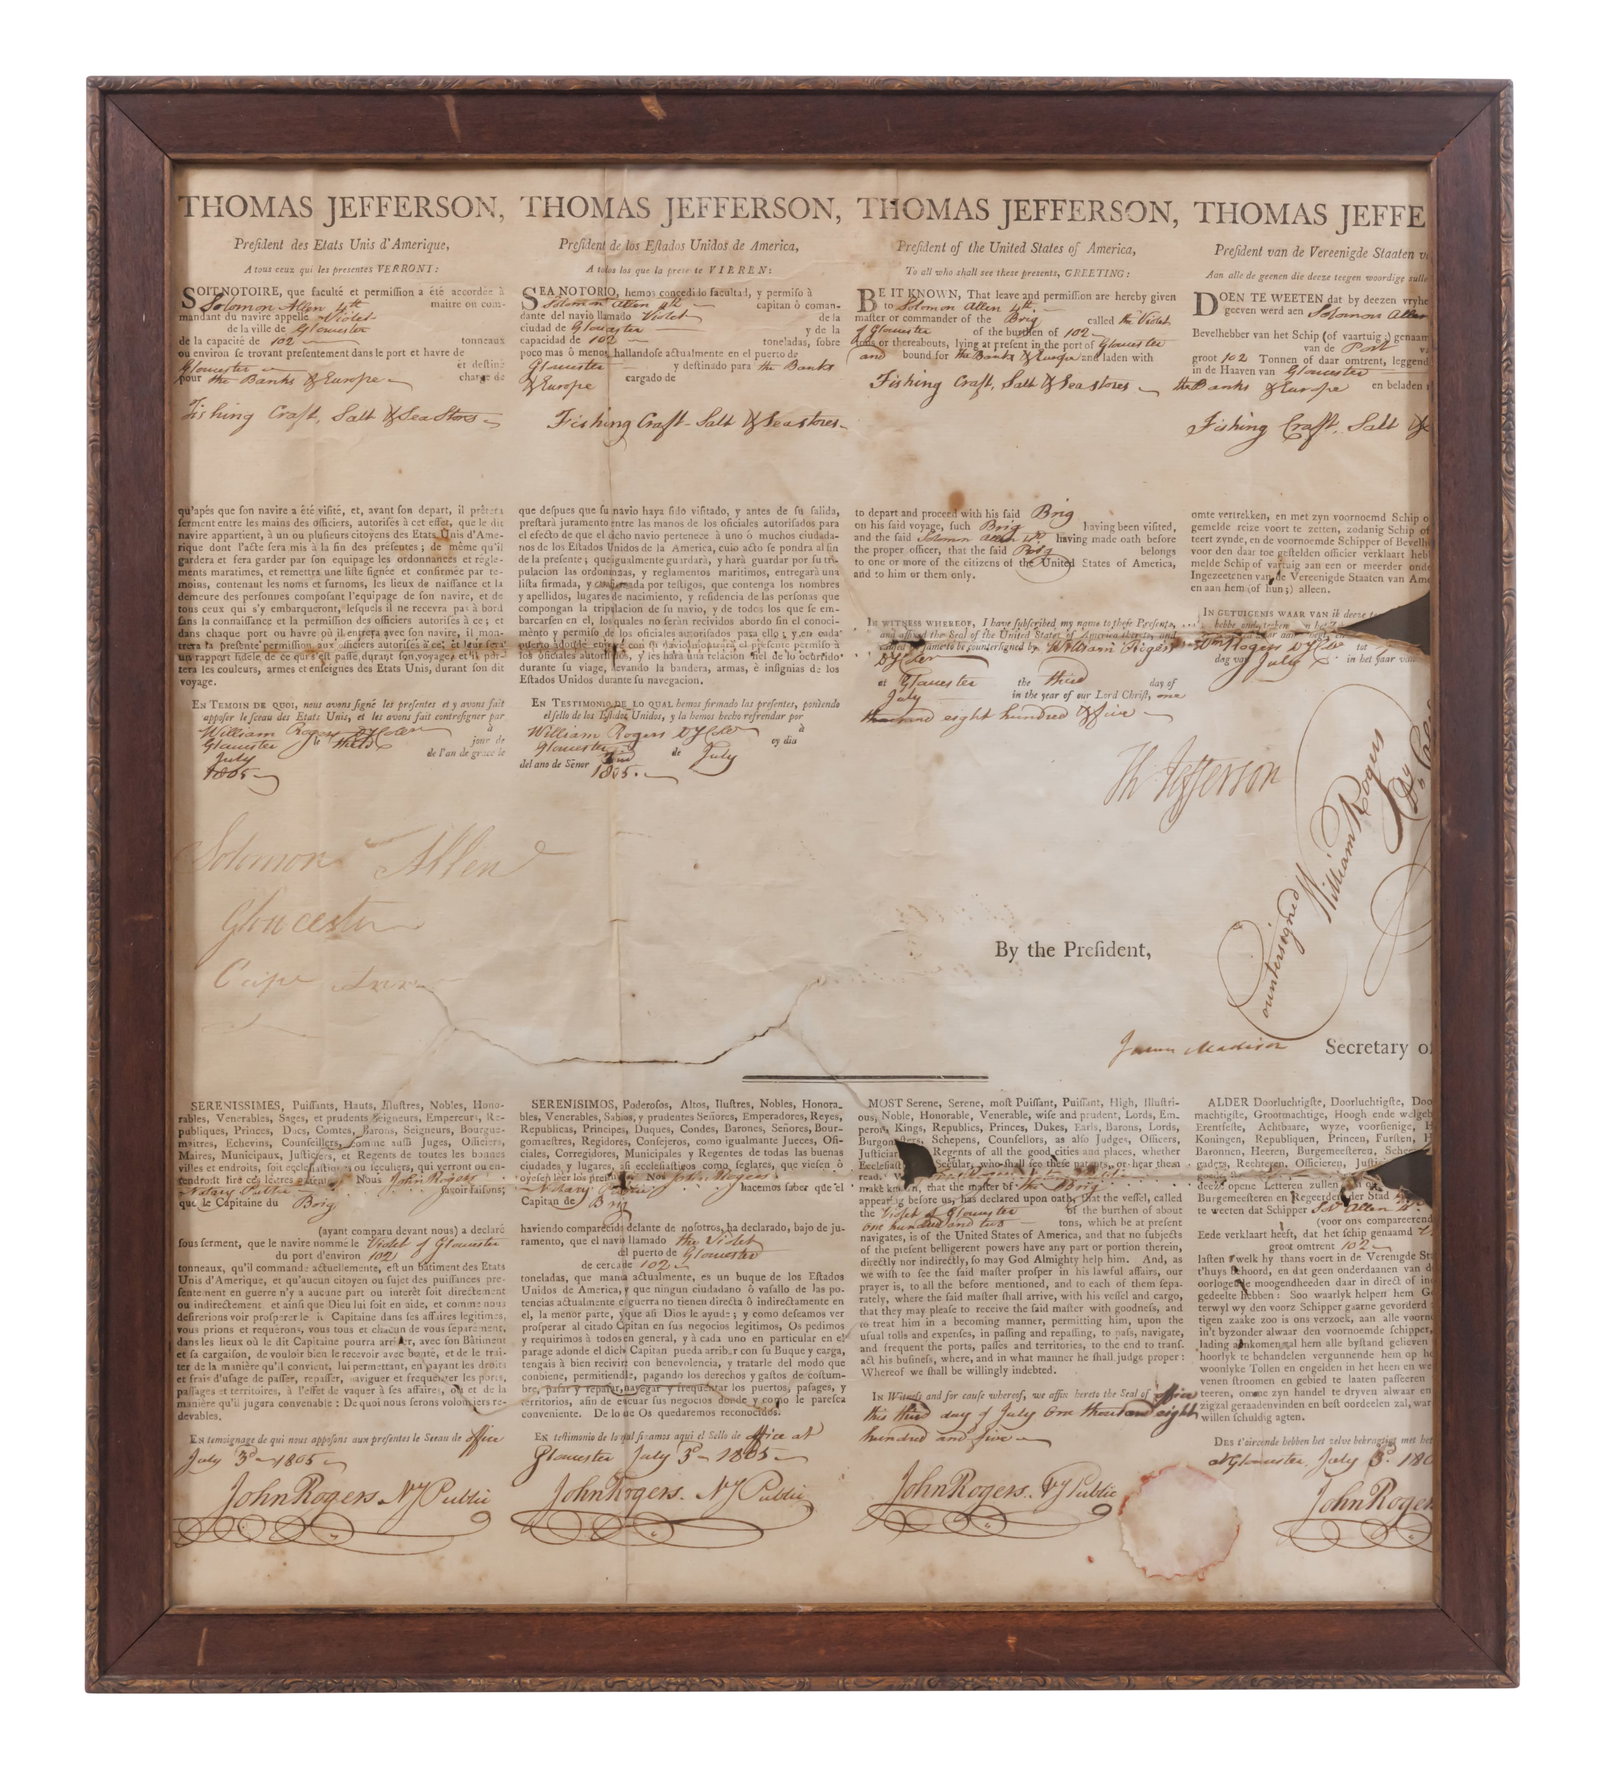 THOMAS JEFFERSON,
Preſident des Etats Unis d'Amerique,
A tous ceux qui les preſentes VERRONT:
SOIT NOTOIRE, que faculté et permiſſion a été accordée à
Solomon Allen 4th maitre ou com-
mandant du navire appellé Violet
de la ville de Gloucester
de la capacité de 102 tonneaux
ou environ ſe trovant preſentement dans le port et havre de
Gloucester et deſtiné
pour the Banks & Europe chargé de
Fishing Craft, Salt & Sea Stores
qu'apés que ſon navire a été viſité, et, avant ſon depart, il prêtera
ſerment entre les mains des officiers, autoriſés à cet effet, que le dit
navire appartient, à un ou pluſieurs citoyens des Etats Unis d'Ame-
rique dont l'acte ſera mis à la fin des préſentes; de même qu'il
gardera et fera garder par ſon equipage les ordonnances et regle-
ments maratimes, et remettra une liſte ſignée et confirmée par te-
moins, contenant les noms et ſurnoms, les lieux de naiſſance et la
demeure des perſonnes compoſant l'equipage de ſon navire, et de
tous ceux qui s'y embarqueront, leſquels il ne recevra pas à bord
ſans la connaiſſance et la permiſſion des officiers autoriſés à ce; et
dans chaque port ou havre où il entrera avec ſon navire, il mon-
trera la preſente permiſſion aux officiers autoriſés à ce, et leur fera
un rapport fidele de ce qui s'eſt paſſé durant ſon voyage, et il por-
tera les couleurs, armes et enſeignes des Etats Unis, durant ſon dit
voyage.
EN TEMOIN DE QUOI, nous avons ſigné les preſentes et y avons fait
appoſer le ſceau des Etats Unis, et les avons fait contreſigner par
William Rogers Dy Coler à
Gloucester le third jour de
July de l'an de grace le
1805
Solomon Allen
Gloucester
Cape Ann
THOMAS JEFFERSON,
Preſident de los Eſtados Unidos de America,
A todos los que la preſente VIEREN:
SEA NOTORIO, hemos concedido facultad, y permiſo à
Solomon Allen 4th capitan ò coman-
dante del navio llamado Violet de la
ciudad de Gloucester y de la
capacidad de 102 toneladas, ſobre
poco mas ò menos hallandoſe actualmente en el puerto de
Gloucester y deſtinado para the Banks
& Europe cargado de
Fishing Craft - Salt & Sea stores
que deſpues que ſu navio haya ſido viſitado, y antes de ſu ſalida,
preſtarà juramento entre las manos de los oficiales autoriſados para
el efecto de que el dicho navio pertenece à uno ò muchos ciudada-
nos de los Eſtados Unidos de la America, cuio acto ſe pondra al fin
de la preſente; que igualmente guardarà, y harà guardar por ſu tri-
pulacion las ordonanzas, y reglamentos maritimos, entregarà una
liſta firmada, y confirmada por teſtigos, que contenga los nombres
y apellidos, lugares de nacimiento, y reſidencia de las perſonas que
compongan la tripulacion de ſu navio, y de todos los que ſe em-
barcarſen en el, los quales no ſeràn recividos abordo ſin el conoci-
mènto y permiſo de los oficiales autoriſados para ello; y en cada
puerto adonde entrè con ſu navio moſtrarà el preſente permiſo à
los oficiales autoriſados, y les harà una relacion fiel de lo ocurrido
durante ſu viage, llevando la bandera, armas, è inſignias de los
Eſtados Unidos durante ſu navegacion.
EN TESTIMONIO DE LO QUAL hemos firmado las preſentes, poniendo
el ſello de los Eſtados Unidos, y la hemos hecho refrendar por
William Rogers Dy Coler à
Gloucester ey dia
de July
del ano de Sẽnor 1805.
THOMAS JEFFERSON,
Preſident of the United States of America,
To all who ſhall ſee theſe preſents, GREETING:
BE IT KNOWN, That leave and permiſſion are hereby given
to Solomon Allen 4th.
maſter or commander of the Brig called the Violet
of Gloucester of the burthen of 102
tons or thereabouts, lying at preſent in the port of Gloucester
and bound for the Banks & Europe and laden with
Fishing Craft, Salt & Sea stores
to depart and proceed with his ſaid Brig
on his ſaid voyage, ſuch Brig having been viſited,
and the ſaid Solomon Allen 4th. having made oath before
the proper officer, that the ſaid Brig belongs
to one or more of the citizens of the United States of America,
and to him or them only.
IN WITNESS WHEREOF, I have ſubſcribed my name to theſe Preſents,
and affixed the Seal of the United States of America thereto, and
cauſed the ſame to be counterſigned by William Rogers
Dy Coler
at Gloucester the third day of
July in the year of our Lord Chriſt, one
thousand eight hundred & five
Th Jefferson
By the Preſident,
James Madison Secretary of
Countersigned
William Rogers
Dy Coler
THOMAS JEFFE
Preſident van de Vereenigde Staaten v
Aan alle de geenen die deeze teegen woordige zulle
DOEN TE WEETEN dat by deezen vryhe
geeven werd aen Solomon Allen
Bevelhebber van het Schip (of vaartuig) genaam
van de Port v
groot 102 Tonnen of daar omtrent, leggend
in de Haaven van Gloucester
the Banks & Europe en beladen
Fishing Craft, Salt &
omte vertrekken, en met zyn voornoemd Schip o
gemelde reize voort te zetten, zodanig Schip of
teert zynde, en de voornoemde Schipper of Bevelh
voor den daar toe geſtelden officier verklaart heb
melde Schip of vartuig aan een or meerder onde
Ingezeetenen van de Vereenigde Staaten van Ame
en aan hem (of hun;) alleen.
IN GETUIGENIS WAAR VAN ik deeze
Wm Rogers Dy Coler tot
dag van July in het jaar van
SERENISSIMES, Puiſſants, Hauts, Illuſtres, Nobles, Hono-
rables, Venerables, Sages, et prudents Seigneurs, Empereur, Re-
publiques, Princes, Ducs, Comtes, Barons, Seigneurs, Bourgue-
maitres, Echevins, Counſeillers, comme auſſi Juges, Officiers,
Maires, Municipaux, Juſticiers, et Regents de toutes les bonnes
villes et endroits, ſoit eccleſiaſtiques ou ſeculiers, qui verront ou en-
tendront lire ces lettres patentes, Nous John Rogers
Notary Public ſavoir faiſons;
que le Capitaine du Brig
(ayant comparu devant nous) a declaré
ſous ſerment, que le navire nommé le Violet of Gloucester
du port d'environ 102
tonneaux, qu'il commande actuellement, eſt un bâtiment des Etats
Unis d'Amerique, et qu'aucun citoyen ou ſujet des puiſſances pre-
ſentement en guerre n'y a aucune part ou interêt ſoit directement
ou indirectement et ainſi que Dieu lui ſoit en aide, et comme nous
deſirerions voir proſperer le dit Capitaine dans ſes affaires legitimes,
vous prions et requerons, vous tous et chacun de vous ſeparement,
dans les lieux où le dit Capitaine pourra arriver, avec ſon Bâtiment
et ſa cargaiſon, de vouloir bien le recevoir avec bonté, et de le trai-
ter de la manière qu'il convient, lui permettant, en payant les droits
et frais d'uſage de paſſer, repaſſer, naviguer et frequenter les ports,
paſſages et territoires, à l'effet de vaquer à ſes affaires, où et de la
manière qu'il jugara convenable: De quoi nous ſerons volontiers re-
devables.
EN temoignage de qui nous appoſons aux preſentes le Sceau de office
July 3d 1805
John Rogers Ny Public
SERENISIMOS, Poderoſos, Altos, Iluſtres, Nobles, Honora-
bles, Venerables, Sabios, y prudentes Señores, Emperadores, Reyes,
Republicas, Principes, Duques, Condes, Barones, Señores, Bour-
gomaeſtres, Regidores, Conſejeros, como igualmante Jueces, Ofi-
ciales, Corregidores, Municipales y Regentes de todas las buenas
ciudades y lugares, aſi eccleſiaſticos como, ſeglares, que vieſen ô
oyeſen leer los preſentes Nos John Rogers
Notary Public hacemos ſaber que el
Capitan de Brig
haviendo comparecido delante de noſotros, ha declarado, bajo de ju-
ramento, que el navio llamado the Violet
del puerto de Gloucester
de cercade 102
toneladas, que manda actualmente, es un buque de los Eſtados
Unidos de America, y que ningun ciudadano ô vaſallo de las po-
tencias actualmente en guerra no tienen directa ô indirectamente en
el, la menor parte, y que aſi Dios le ayude; y como deſeamos ver
proſperar al citado Capitan en ſus negocios legitimos, Os pedimos
y requirimos à todos en general, y à cada uno en particular en el
parage adonde el dich Capitan pueda arribar con ſu Buque y carga,
tengais à bien recivirle con benevolencia, y tratarle del modo que
conbiene, permitiendole, pagando los derechos y gaſtos de coſtum-
bre, paſar y repaſar, navegar y frequentar los puertos, paſages, y
territorios, afin de evcuar ſus negocios donde y como le pareſca
conveniente. De lo que Os quedaremos reconocidos.
EN teſtimonio de lo qual fixamos aqui el Sello de office at
Gloucester July 3d 1805
John Rogers. Ny Public
MOST Serene, Serene, moſt Puiſſant, Puiſſant, High, Illuſtri-
ous, Noble, Honorable, Venerable, wiſe and prudent, Lords, Em-
perors, Kings, Republics, Princes, Dukes, Earls, Barons, Lords,
Burgomaſters, Schepens, Counſellors, as alſo Judges, Officers,
Juſticiar Regents of all the good cities and places, whether
Eccleſiaſt Secular, who ſhall ſee theſe patents, or hear them
read.
make known, that the maſter of the Brig
appearing before us, has declared upon oath, that the veſſel, called
the Violet of Gloucester of the burthen of about
one hundred and two tons, which he at preſent
navigates, is of the United States of America, and that no ſubjects
of the preſent belligerent powers have any part or portion therein,
directly nor indirectly, ſo may God Almighty help him. And, as
we wiſh to ſee the ſaid maſter proſper in his lawful affairs, our
prayer is, to all the before mentioned, and to each of them ſepa-
rately, where the ſaid maſter ſhall arrive, with his veſſel and cargo,
that they may pleaſe to receive the ſaid maſter with goodneſs, and
to treat him in a becoming manner, permitting him, upon the
uſual tolls and expenſes, in paſſing and repaſſing, to paſs, navigate,
and frequent the ports, paſſes and territories, to the end to tranſ-
act his buſineſs, where, and in what manner he ſhall judge proper:
Whereof we ſhall be willingly indebted.
IN Witneſs and for cauſe whereof, we affix hereto the Seal of office
this third day of July One thousand eight
hundred and five
John Rogers. Ny Public
ALDER Doorluchtigſte, Doorluchtigſte, Doo
machtigſte, Grootmachtige, Hoogh ende welgeb
Erentfeſte, Achtbaare, wyze, voorſienige, H
Koningen, Republiquen, Princen, Furſten, H
Baronnen, Heeren, Burgemeeſteren, Schep
gaders, Rechteren, Officieren, Juſtic
deeze opene Letteren zullen
Burgemeeſteren en Regeerders der Stad
te weeten dat Schipper Sol Allen 4th.
(voor ons compareerend
Eede verklaart heeft, dat het ſchip genaamd
groot omtrent 102
laſten welk hy thans voert in de Verenigde St
t'huys behoord, en dat geen onderdaanen van d
oorlogende moogendheeden daar in direct of in
gedeelte hebben: Soo waarlyk helpen hem G
terwyl wy den voorz Schipper gaarne gevorderd
tigen zaake zoo is ons verzoek, aan alle voorn
in't byzonder alwaar den voornoemde ſchipper,
lading ankomen zal hem alle byſtand gelieven
hoorlyk te behandelen vergunnende hem op h
woonlyke Tollen en ongelden in het heen en we
venen ſtroomen en gebied te laaten paſſeeren
teeren, omme zyn handel te dryven alwaar en
zigzal geraadenvinden en beſt oordeelen zal, war
willen ſchuldig agten.
DES t'oirconde hebben het zelve bekragtigt met het
at Gloucester, July 3d. 180
John Roger